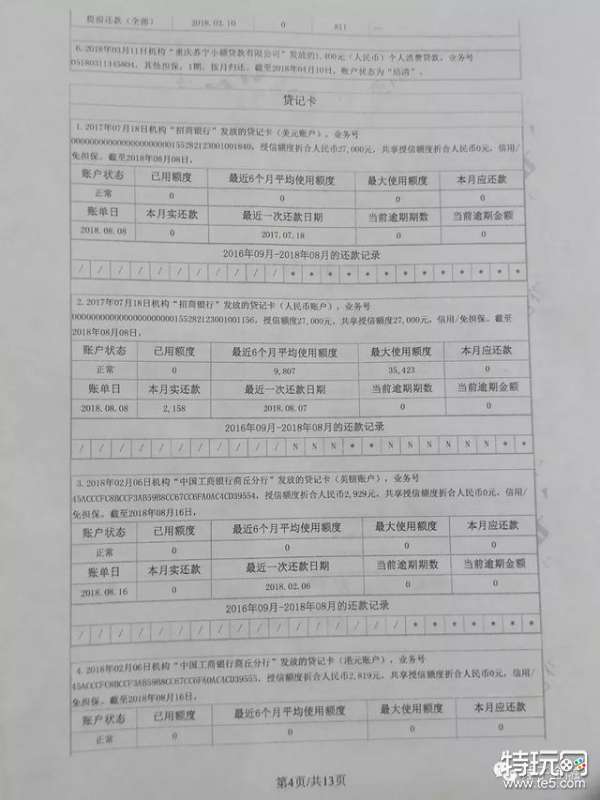 提前还款（全部） 2018.03.10 0 811 --
6.2018年03月11日机构“重庆苏宁小额贷款有限公司”发放的1,400元（人民币）个人消费贷款，业务号
05180311345804，其他担保，1期，按月归还，截至2018年04月10日，账户状态为“结清”。
贷记卡
1.2017年07月18日机构“招商银行”发放的贷记卡（美元账户），业务号
，授信额度折合人民币27,000元，共享授信额度折合人民币0元，信用/
免担保。截至2018年08月08日，
账户状态 已用额度 最近6个月平均使用额度 最大使用额度 本月应还款
正常 0 0 0 0
账单日 本月实还款 最近一次还款日期 当前逾期期数 当前逾期金额
2018.08.08 0 2017.07.18 0 0
2016年09月-2018年08月的还款记录
/ / / / / / / / / / / * * * * * * * * * * * * *
2.2017年07月18日机构“招商银行”发放的贷记卡（人民币账户），业务号
，授信额度27,000元，共享授信额度27,000元，信用/免担保。截至
2018年08月08日，
账户状态 已用额度 最近6个月平均使用额度 最大使用额度 本月应还款
正常 0 9,807 35,423 0
账单日 本月实还款 最近一次还款日期 当前逾期期数 当前逾期金额
2018.08.08 2,158 2018.08.07 0 0
2016年09月-2018年08月的还款记录
/ / / / / / / / / / / N N N * * N N N N N N * *
3.2018年02月06日机构“中国工商银行商丘分行”发放的贷记卡（美元账户），业务号
，授信额度折合人民币2,929元，共享授信额度折合人民币0元，信用/
免担保。截至2018年08月16日，
账户状态 已用额度 最近6个月平均使用额度 最大使用额度 本月应还款
正常 0 0 0 0
账单日 本月实还款 最近一次还款日期 当前逾期期数 当前逾期金额
2018.08.16 0 2018.02.06 0 0
2016年09月-2018年08月的还款记录
/ / / / / / / / / / / / / / / / / * * * * * * *
4.2018年02月06日机构“中国工商银行商丘分行”发放的贷记卡（港元账户），业务号
，授信额度折合人民币2,819元，共享授信额度折合人民币0元，信用/
免担保。截至2018年08月16日，
账户状态 已用额度 最近6个月平均使用额度 最大使用额度 本月应还款
正常 0 0 0 0
第4页/共13页
特玩网
www.te5.com